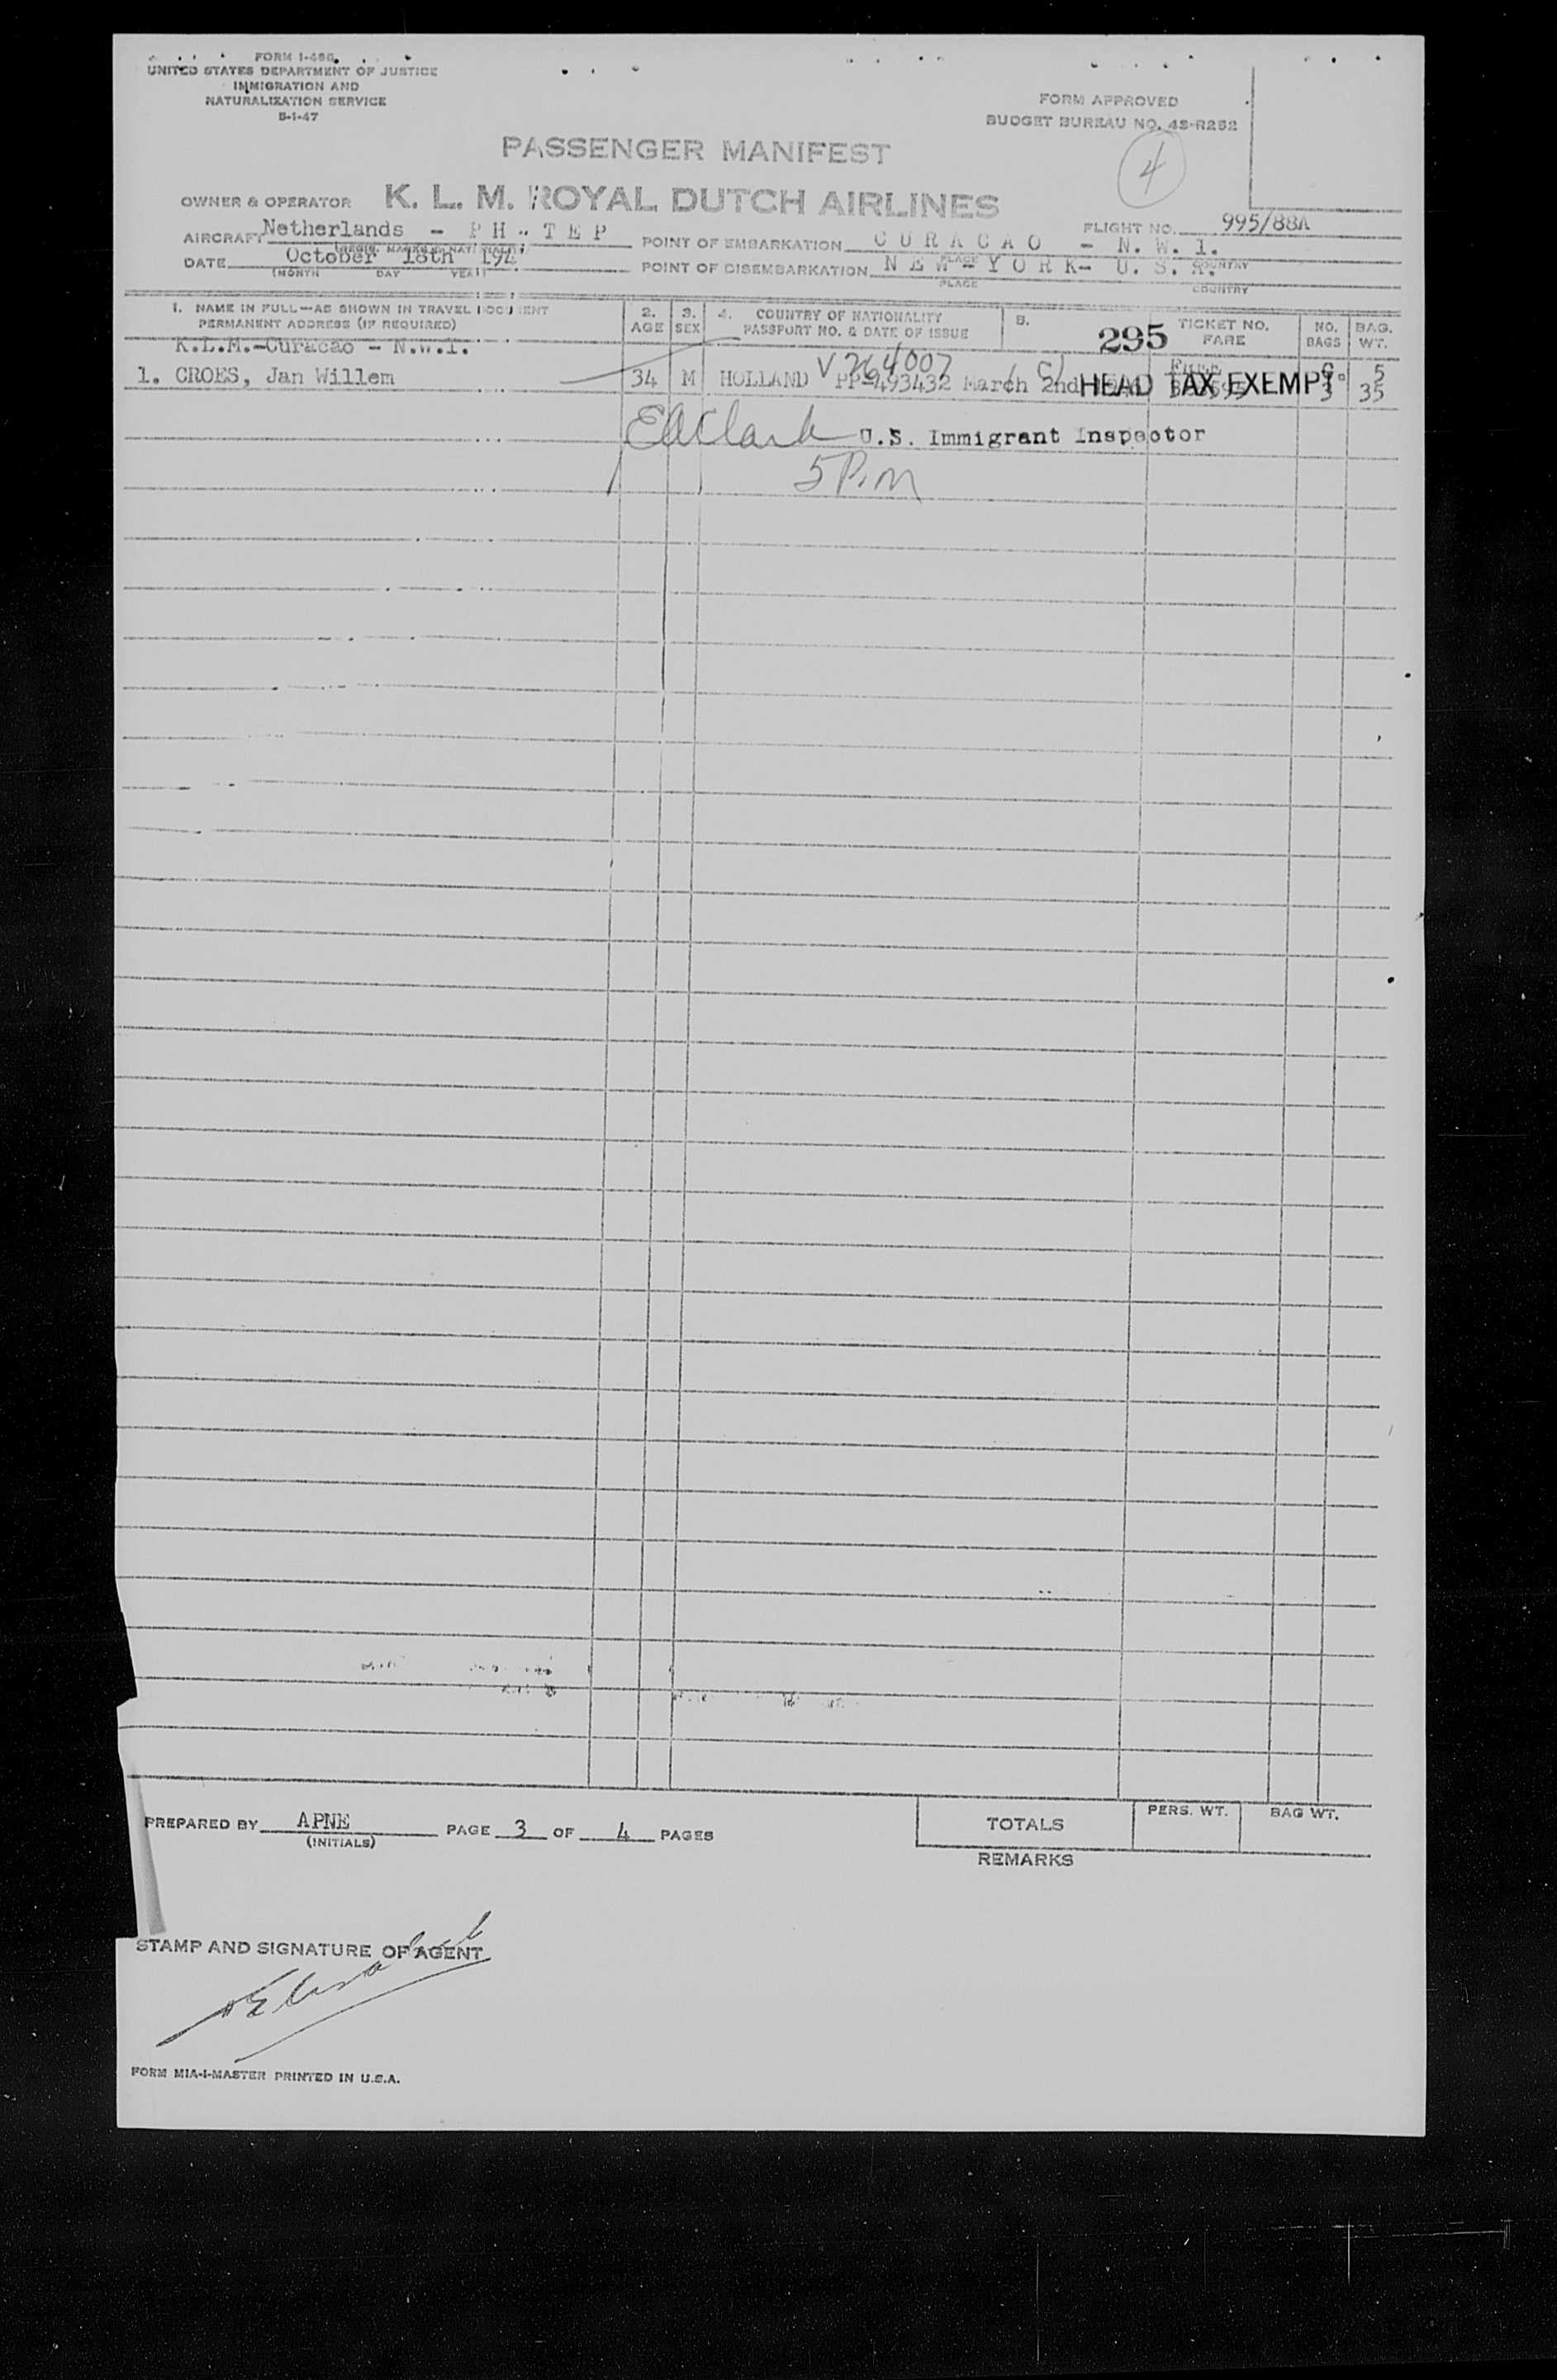 FORM I-466
UNITED STATES DEPARTMENT OF JUSTICE
IMMIGRATION AND
NATURALIZATION SERVICE
5-1-47
FORM APPROVED
BUDGET BUREAU NO. 43-R252
4
PASSENGER MANIFEST
OWNER & OPERATOR K. L. M. ROYAL DUTCH AIRLINES
AIRCRAFT Netherlands - PH-TEP POINT OF EMBARKATION CURACAO - N. W. I. FLIGHT NO. 995/88A
(REGIS. MARKS & NATIONALITY) PLACE COUNTRY
DATE October 18th 194 POINT OF DISEMBARKATION NEW-YORK- U. S. A.
(MONTH DAY YEAR) PLACE COUNTRY
1. NAME IN FULL—AS SHOWN IN TRAVEL DOCUMENT 2. 3. 4. COUNTRY OF NATIONALITY 5. 295 TICKET NO. NO. BAG.
PERMANENT ADDRESS (IF REQUIRED) AGE SEX PASSPORT NO. & DATE OF ISSUE FARE BAGS WT.
K.L.M.-Curacao - N.W.I. V 264007 5
1. CROES, Jan Willem 34 M HOLLAND PP-493432 March 2nd HEAD TAX EXEMPT 3 35
EAClark U.S. Immigrant Inspector
5 P.M
PREPARED BY APNE PAGE 3 OF 4 PAGES TOTALS PERS. WT. BAG WT.
(INITIALS)
REMARKS
STAMP AND SIGNATURE OF AGENT
FORM MIA-I-MASTER PRINTED IN U.S.A.